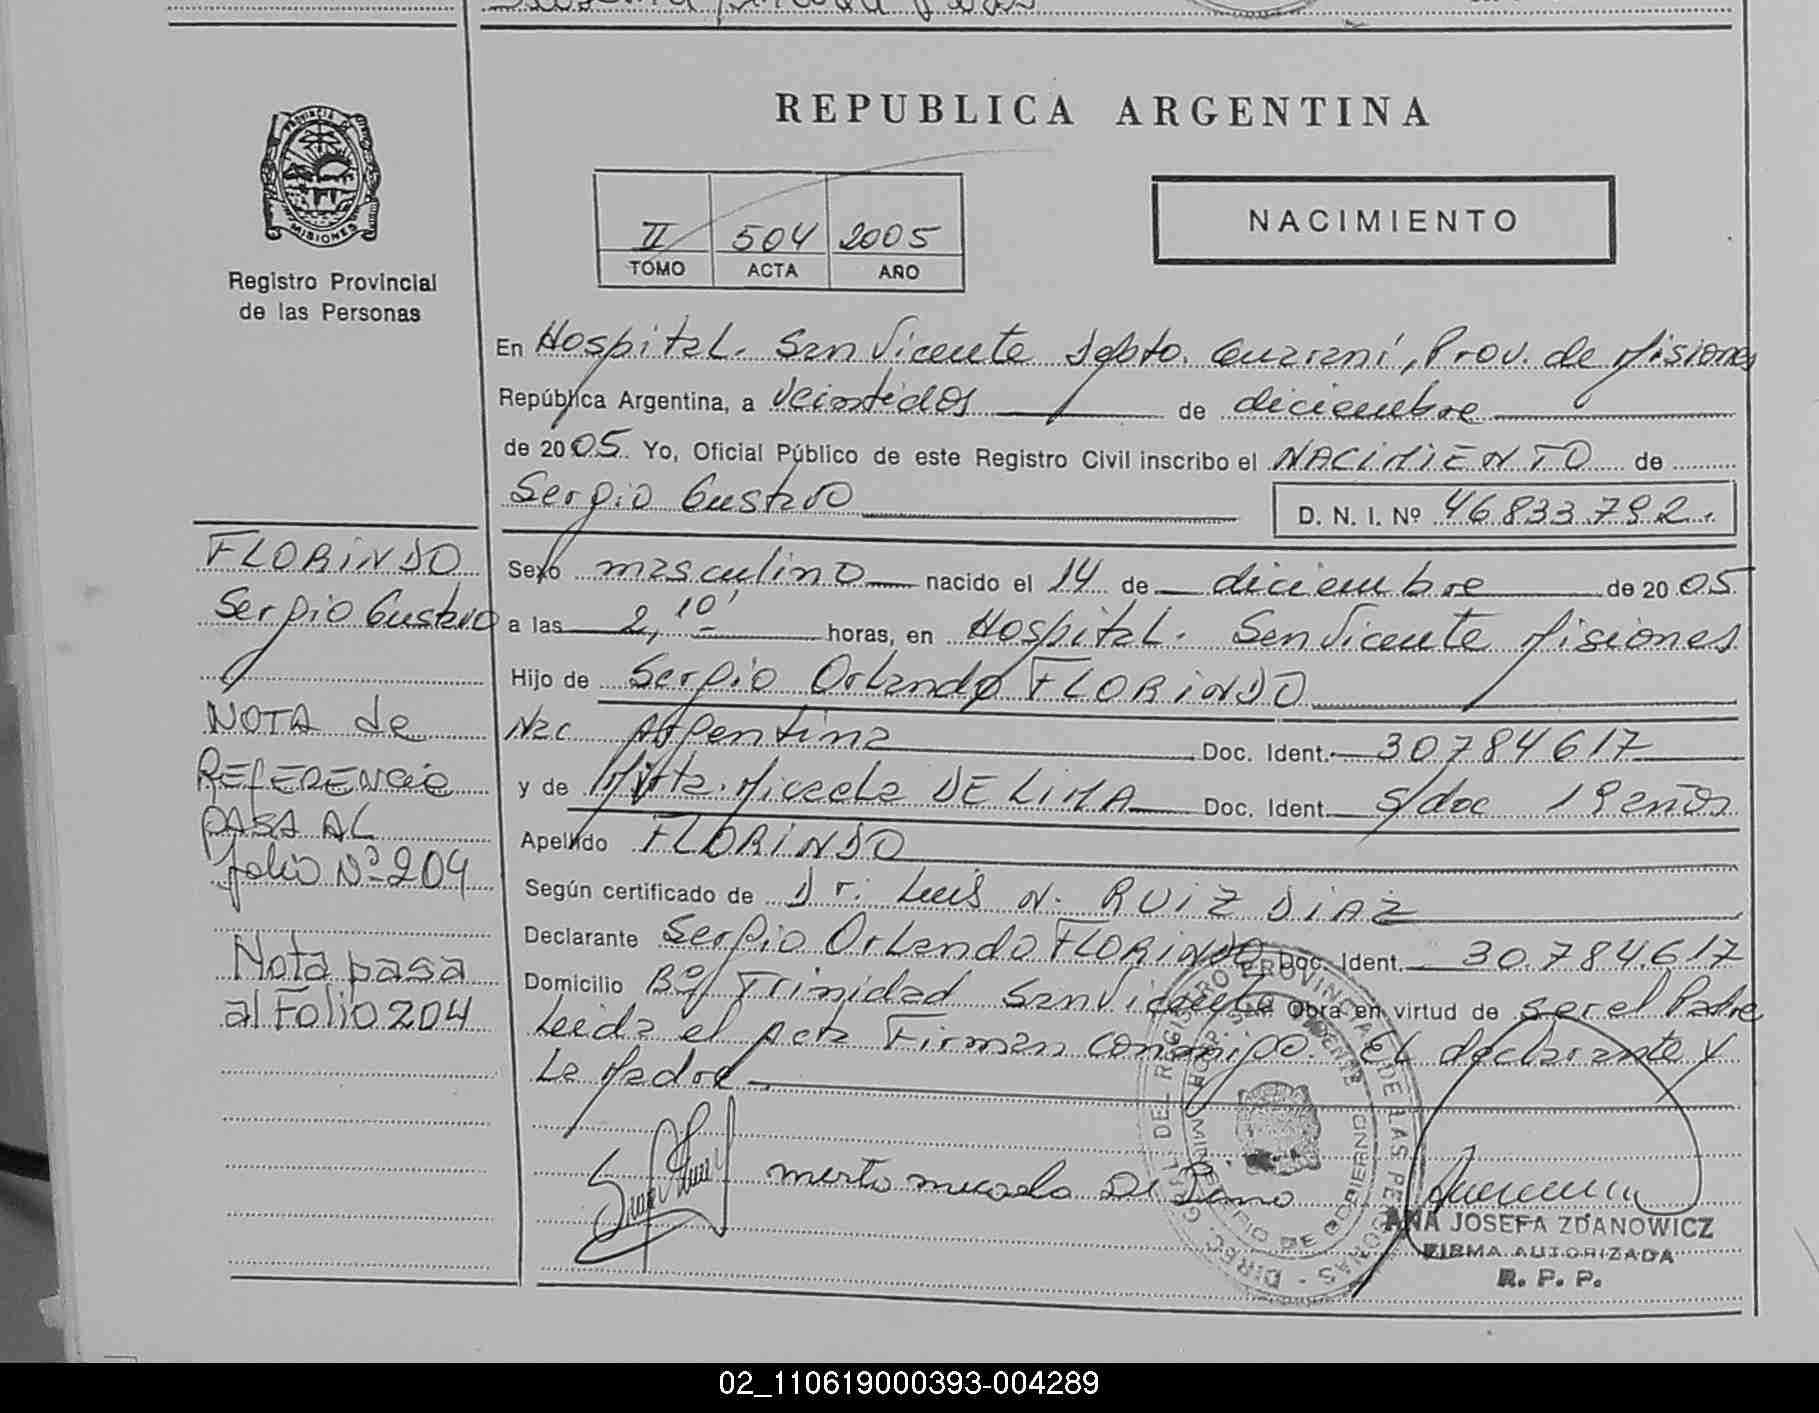 REPUBLICA ARGENTINA
PROVINCIA DE
MISIONES
Registro Provincial
de las Personas
II 504 2005
TOMO ACTA AÑO
NACIMIENTO
En Hospital. San Vicente Dpto. Guaraní, Prov. de Misiones
República Argentina, a veintidos de diciembre
de 2005. Yo, Oficial Público de este Registro Civil inscribo el NACIMIENTO de
Sergio Gustavo D. N. I. Nº 46.833.792.
Sexo masculino nacido el 14 de diciembre de 2005
a las 2,10' horas, en Hospital. San Vicente Misiones
Hijo de Sergio Orlando FLORINDO
Nac Argentina Doc. Ident. 30784617
y de Mirta Micaela DE LIMA Doc. Ident. s/doc 19 años
Apellido FLORINDO
Según certificado de Dr. Luis N. RUIZ DIAZ
Declarante Sergio Orlando FLORINDO Doc. Ident. 30.784.617
Domicilio Bº Trinidad San Vicente Obra en virtud de ser el Padre
Leida el acta Firman conmigo. El declarante y
La Madre
FLORINDO
Sergio Gustavo
NOTA de
REFERENCIE
PASA AL
folio Nº 204
Nota pasa
al Folio 204
DIREC. GRAL. DEL REGISTRO PROVINCIAL DE LAS PERSONAS
MINISTERIO DE GOBIERNO
ANA JOSEFA ZDANOWICZ
FIRMA AUTORIZADA
R. P. P.
02_110619000393-004289